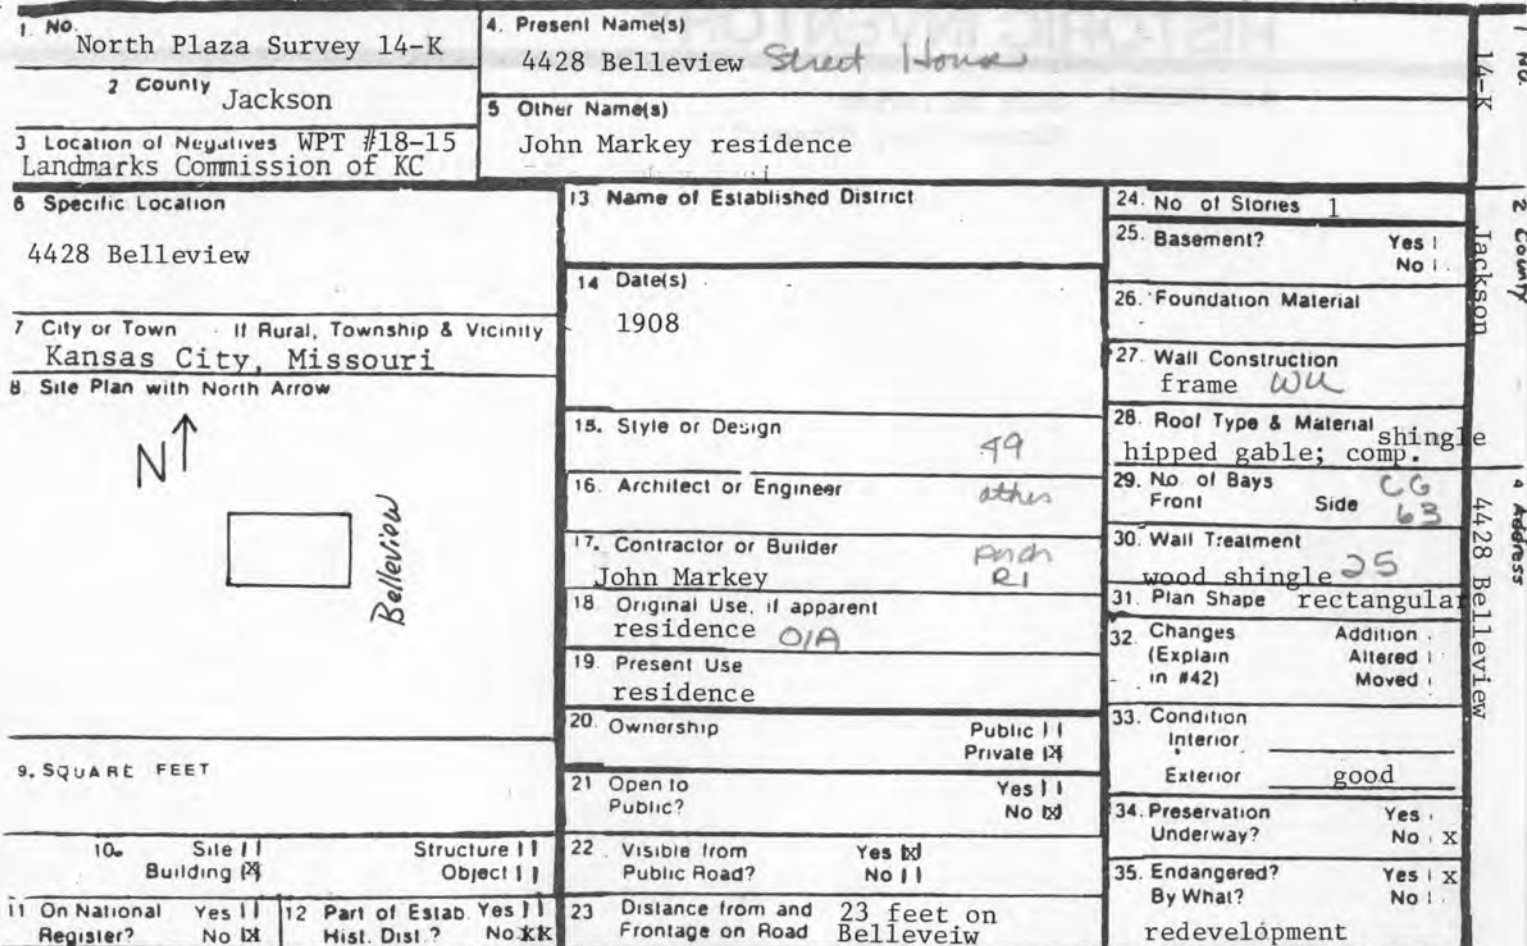 1. No.
North Plaza Survey 14-K
2 County
Jackson
3 Location of Negatives WPT #18-15
Landmarks Commission of KC
4. Present Name(s)
4428 Belleview Street House
5 Other Name(s)
John Markey residence
6 Specific Location
4428 Belleview
7 City or Town If Rural, Township & Vicinity
Kansas City, Missouri
8. Site Plan with North Arrow
N
Belleview
9. SQUARE FEET
10. Site
Structure
Building X
Object
11 On National Register? Yes
No X
12 Part of Estab. Hist. Dist.? Yes
No XX
13 Name of Established District
14 Date(s)
1908
15. Style or Design
49
16. Architect or Engineer
other
17. Contractor or Builder
John Markey
porch
R1
18. Original Use, if apparent
residence O1A
19. Present Use
residence
20. Ownership
Public
Private X
21 Open to Public?
Yes
No X
22 Visible from Public Road?
Yes X
No
23 Distance from and Frontage on Road
23 feet on
Belleveiw
24. No of Stories 1
25. Basement?
Yes
No
26. Foundation Material
27. Wall Construction
frame WU
28. Roof Type & Material shingle
hipped gable; comp.
29. No of Bays
Front Side
CG
63
30. Wall Treatment
wood shingle 25
31. Plan Shape rectangular
32. Changes
(Explain
in #42)
Addition
Altered
Moved
33. Condition
Interior
Exterior good
34. Preservation Underway?
Yes
No X
35. Endangered?
By What?
Yes X
No
redevelopment
1 No.
14-K
2 County
Jackson
4 Address
4428 Belleview